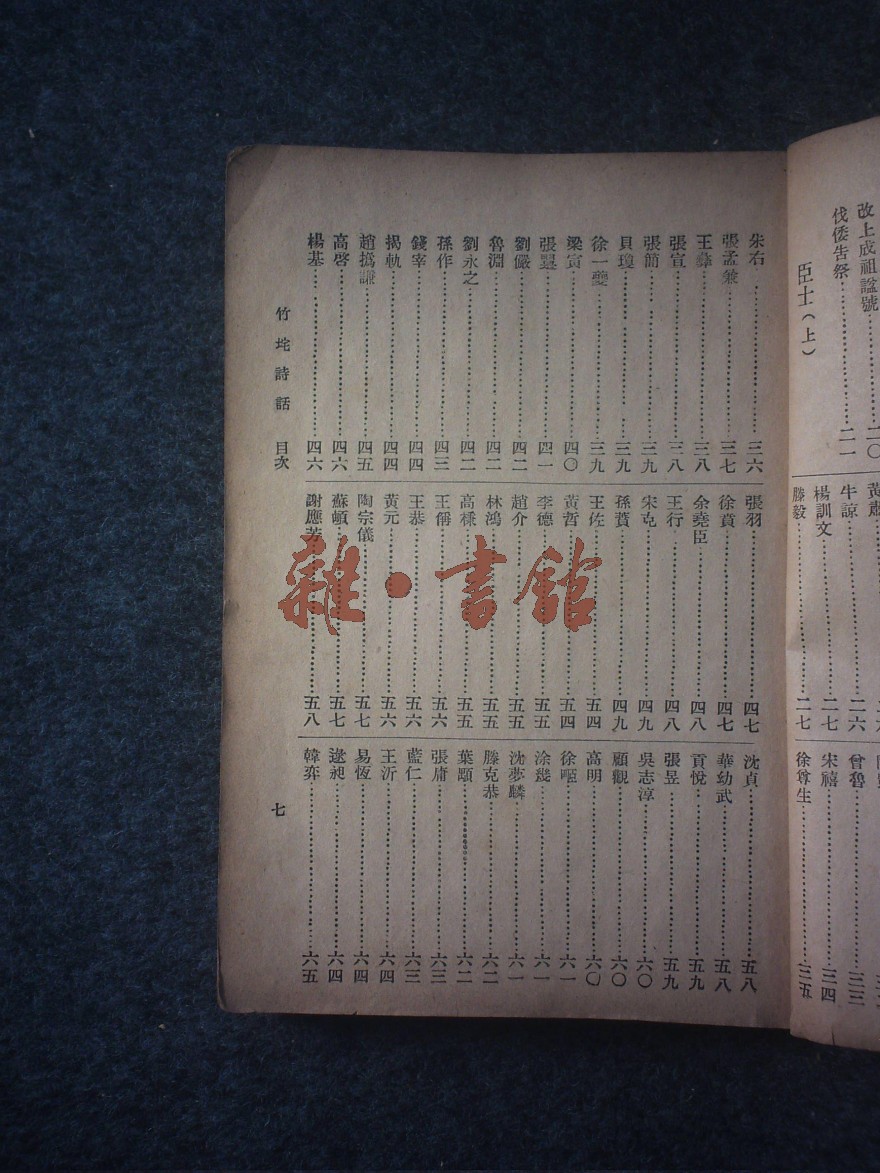 改上成祖諡號二〇
伐倭告祭二一
臣士(上)
牛諒二六
楊訓文二七
滕毅二七
曾魯三三
宋禧三四
徐尊生三五
朱右三六
張孟兼三七
王彝三八
張宣三八
張簡三九
貝瓊三九
徐一夔三九
梁寅四〇
張羽四七
徐賁四七
余堯臣四八
王行四八
宋克四九
孫蕡四九
王佐五四
黃哲五四
李德五五
趙介五五
林鴻五五
高棅五五
王偁五六
王恭五六
黃元五六
陶宗儀五七
蘇頓五七
謝應芳五八
劉儼四二
魯淵四二
劉永之四二
孫作四三
錢宰四四
揭軌四四
趙撝謙四五
高啓四六
楊基四六
沈貞五八
華幼武五八
貢悅五九
張昱五九
吳志淳六〇
顧觀六〇
高明六〇
涂幾六一
沈夢麟六一
滕克恭六二
葉顒六二
張庸六三
藍仁六三
王沂六四
易恆六四
逯昶六四
韓奕六五
竹垞詩話 目次
七
雜·書館